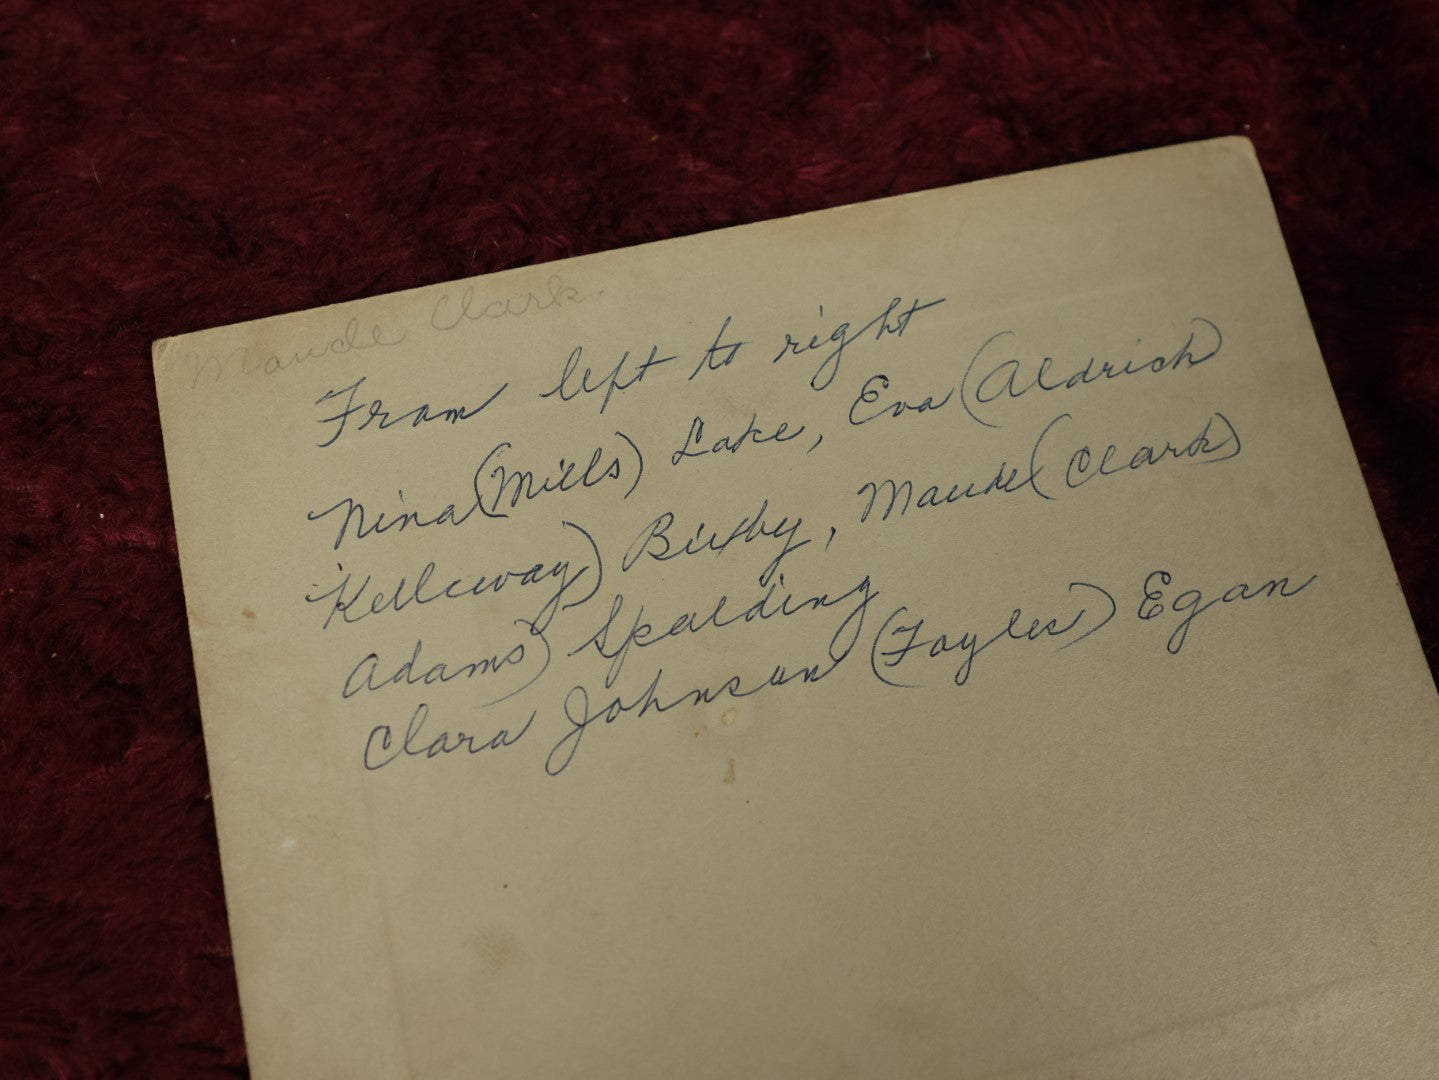 Maude Clark.
From left to right
Nina (Mills) Lake, Eva (Aldrich
Kelleway) Bixby, Maude (Clark)
Adams) Spalding
Clara Johnson (Foyles) Egan